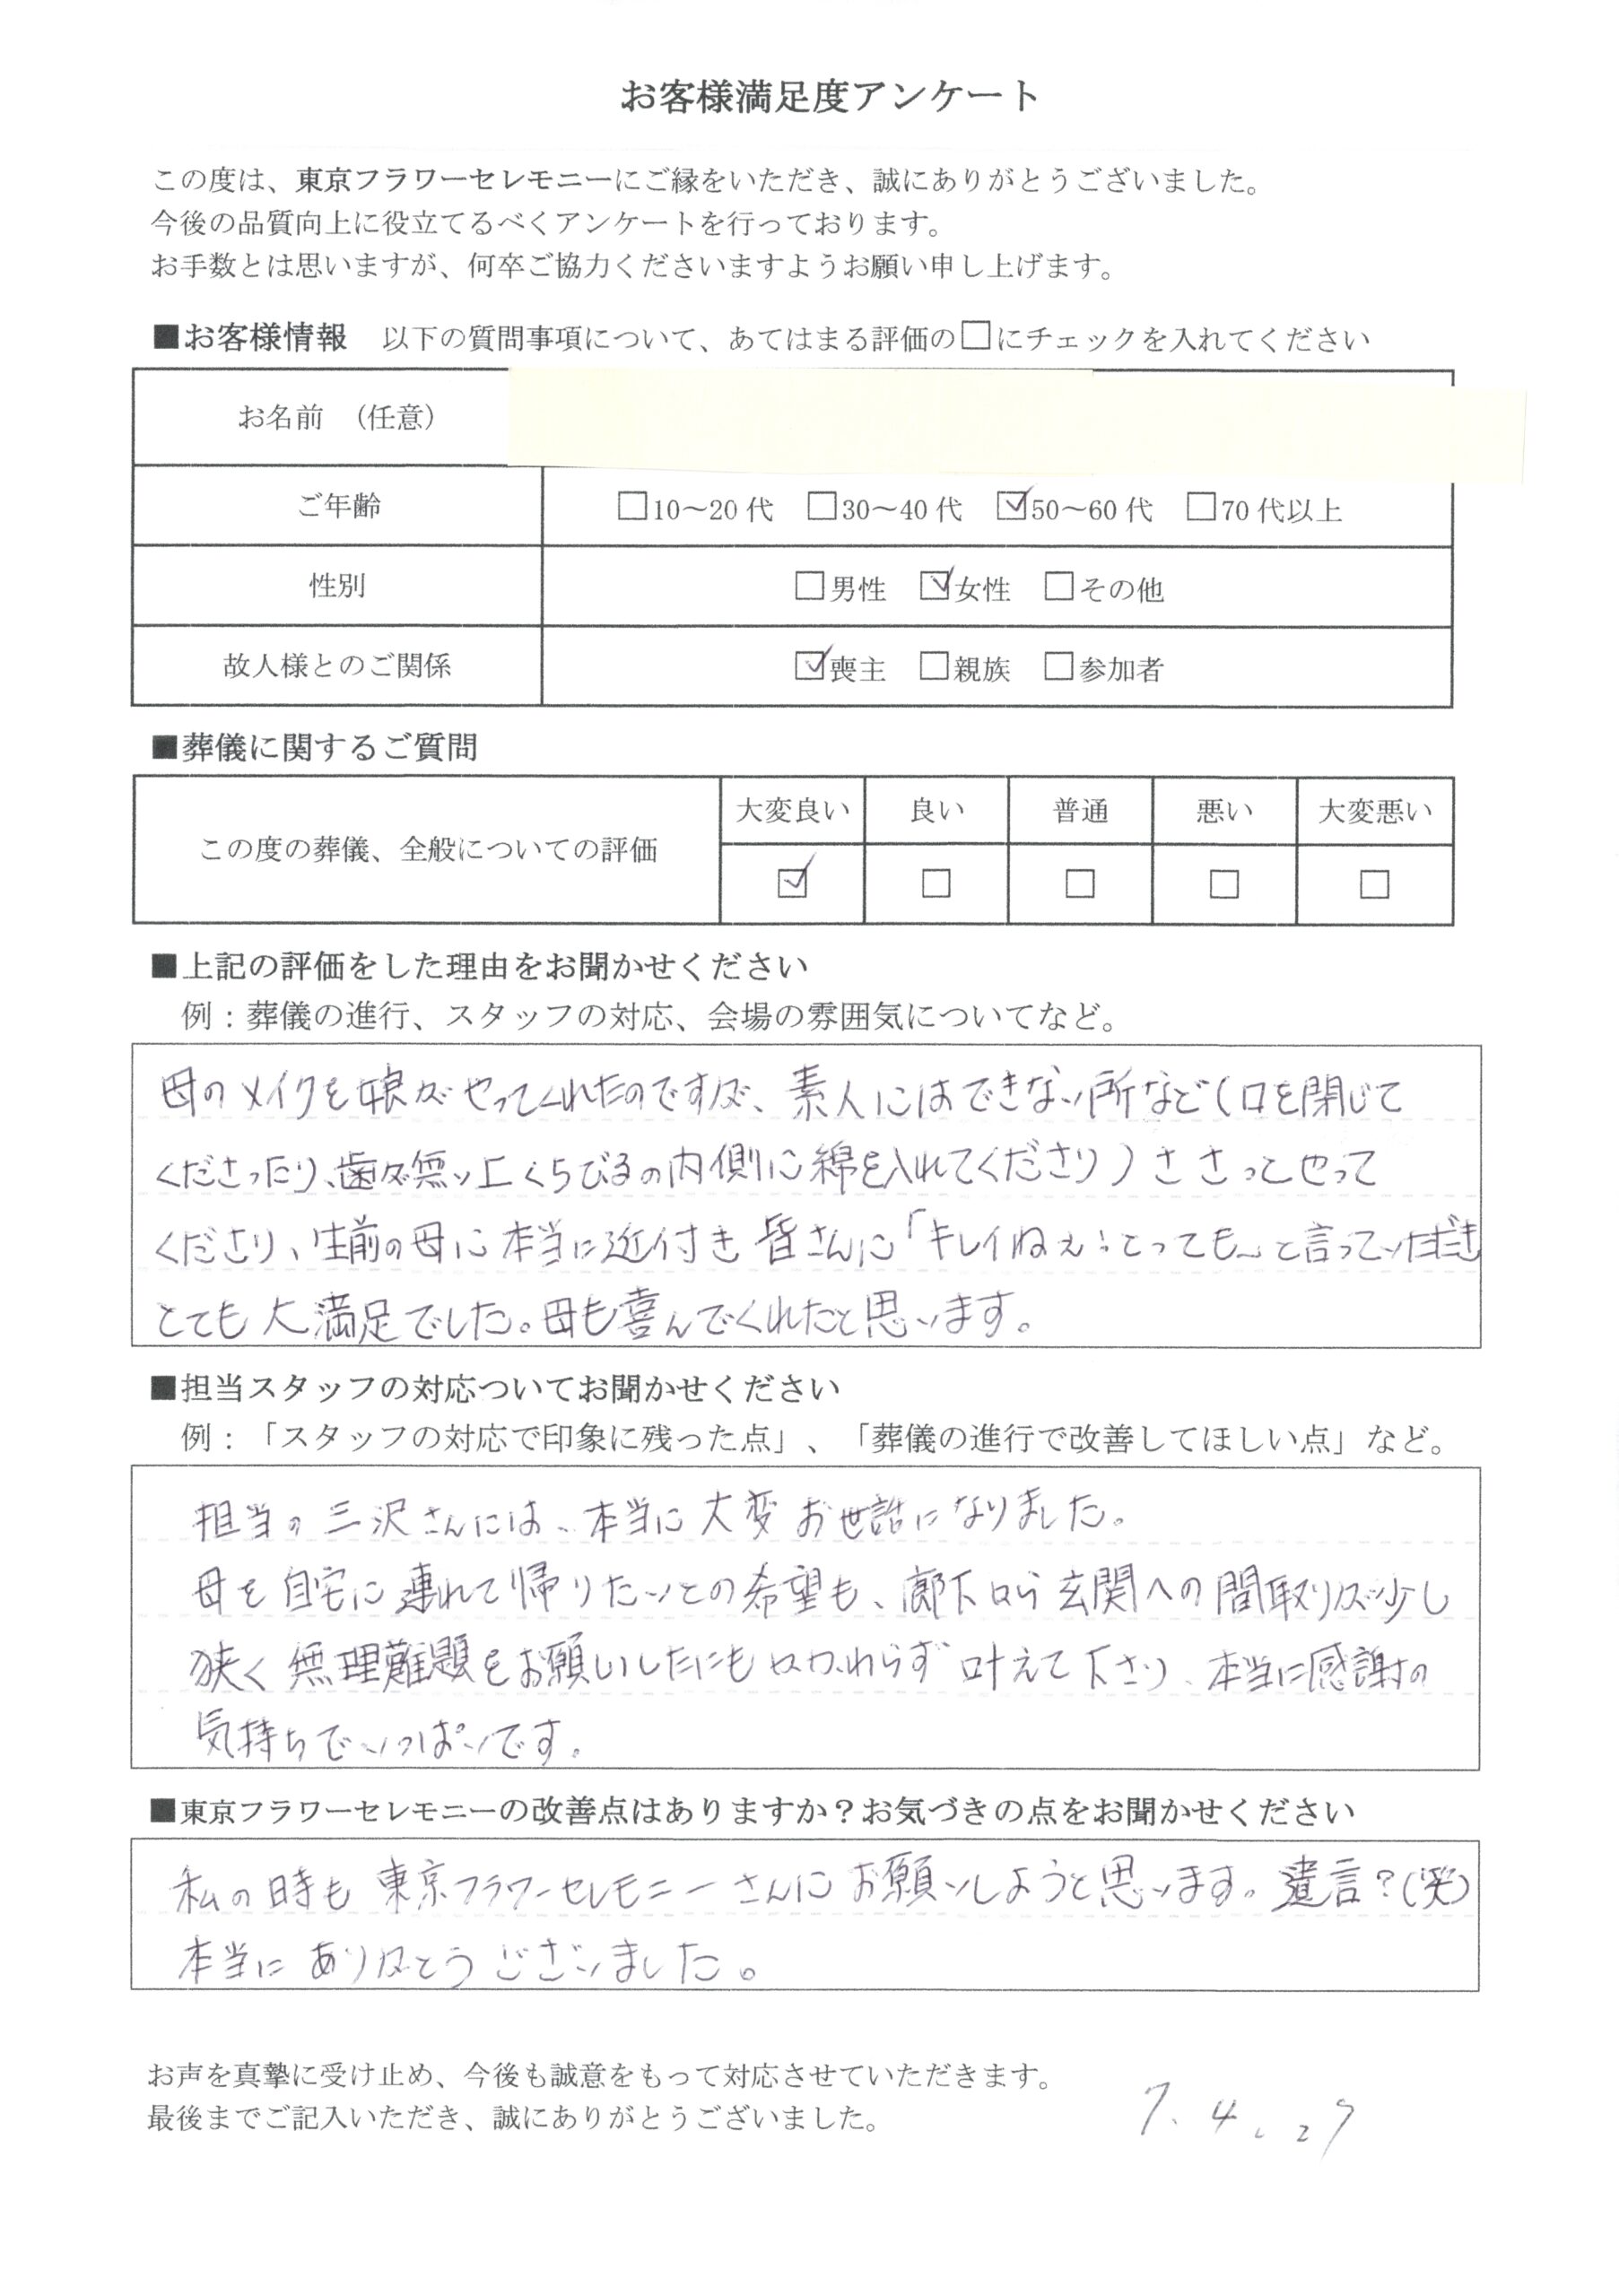 お客様満足度アンケート
この度は、東京フラワーセレモニーにご縁をいただき、誠にありがとうございました。
今後の品質向上に役立てるべくアンケートを行っております。
お手数とは思いますが、何卒ご協力くださいますようお願い申し上げます。
■お客様情報 以下の質問事項について、あてはまる評価の□にチェックを入れてください
お名前 (任意)
ご年齢 □10～20代 □30～40代 ☑50～60代 □70代以上
性別 □男性 ☑女性 □その他
故人様とのご関係 ☑喪主 □親族 □参加者
■葬儀に関するご質問
大変良い 良い 普通 悪い 大変悪い
この度の葬儀、全般についての評価
☑ □ □ □ □
■上記の評価をした理由をお聞かせください
例：葬儀の進行、スタッフの対応、会場の雰囲気についてなど。
母のメイクを娘がやってくれたのですが、素人にはできない所など(口を閉じて
くださったり、歯が無い上くちびるの内側に綿を入れてくださり)ささっとやって
くださり、生前の母に本当に近付き皆さんに「キレイねぇ：とっても～と言っていただき
とても大満足でした。母も喜んでくれたと思います。
■担当スタッフの対応ついてお聞かせください
例：「スタッフの対応で印象に残った点」、「葬儀の進行で改善してほしい点」など。
担当の三沢さんには、本当に大変お世話になりました。
母を自宅に連れて帰りたいとの希望も、廊下から玄関への間取りが少し
狭く無理難題をお願いしたにもかかわらず叶えて下さり、本当に感謝の
気持ちでいっぱいです。
■東京フラワーセレモニーの改善点はありますか？お気づきの点をお聞かせください
私の時も東京フラワーセレモニーさんにお願いしようと思います。遺言？(笑)
本当にありがとうございました。
お声を真摯に受け止め、今後も誠意をもって対応させていただきます。
最後までご記入いただき、誠にありがとうございました。
7.4.27